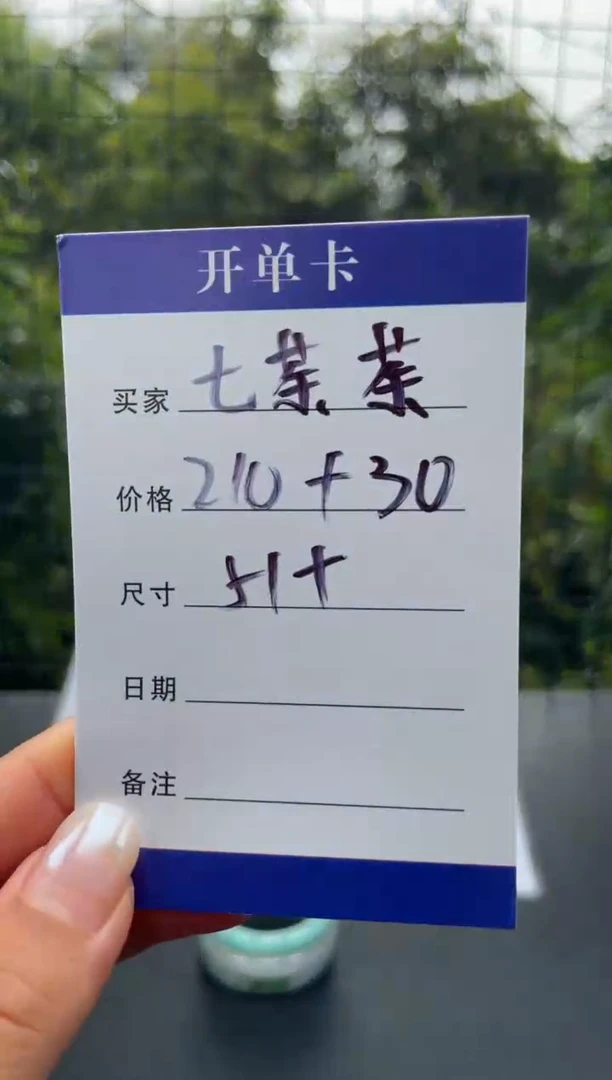 开单卡
买家 七茉茉
价格 210+30
尺寸 51+
日期
备注